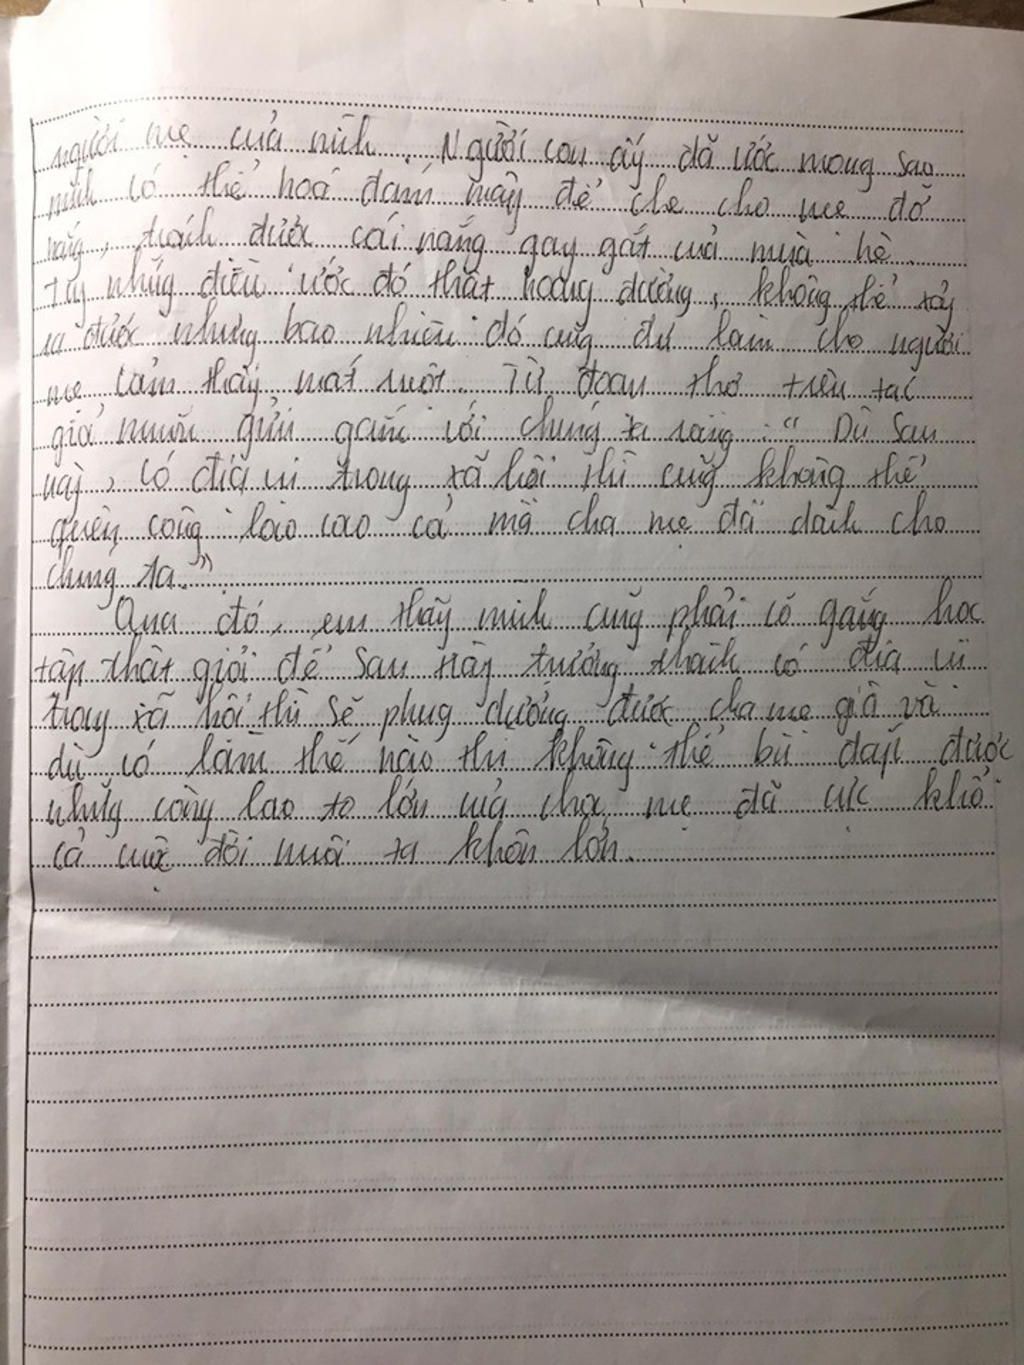 người mẹ của mình. Người con ấy đã ước mong sao
mình có thể hoá đám mây để che cho mẹ đỡ
nắng, tránh được cái nắng gay gắt của mùa hè.
Tuy những điều ước đó thật hoang đường, không thể xảy
ra được nhưng bao nhiêu đó cũng đủ làm cho người
mẹ cảm thấy mát ruột. Từ đoạn thơ trên tác
giả muốn gửi gắm với chúng ta rằng: "Dù sau
này, có địa vị trong xã hội thì cũng không thể
quên công lao cao cả mà cha mẹ đã dành cho
chúng ta."
Qua đó, em thấy mình cũng phải cố gắng học
tập thật giỏi để sau này trưởng thành có địa vị
trong xã hội thì sẽ phụng dưỡng được cha mẹ già và
dù có làm thế nào thì không thể bù đáp được
những công lao to lớn của cha mẹ đã cực khổ
cả cuộc đời nuôi ta khôn lớn.